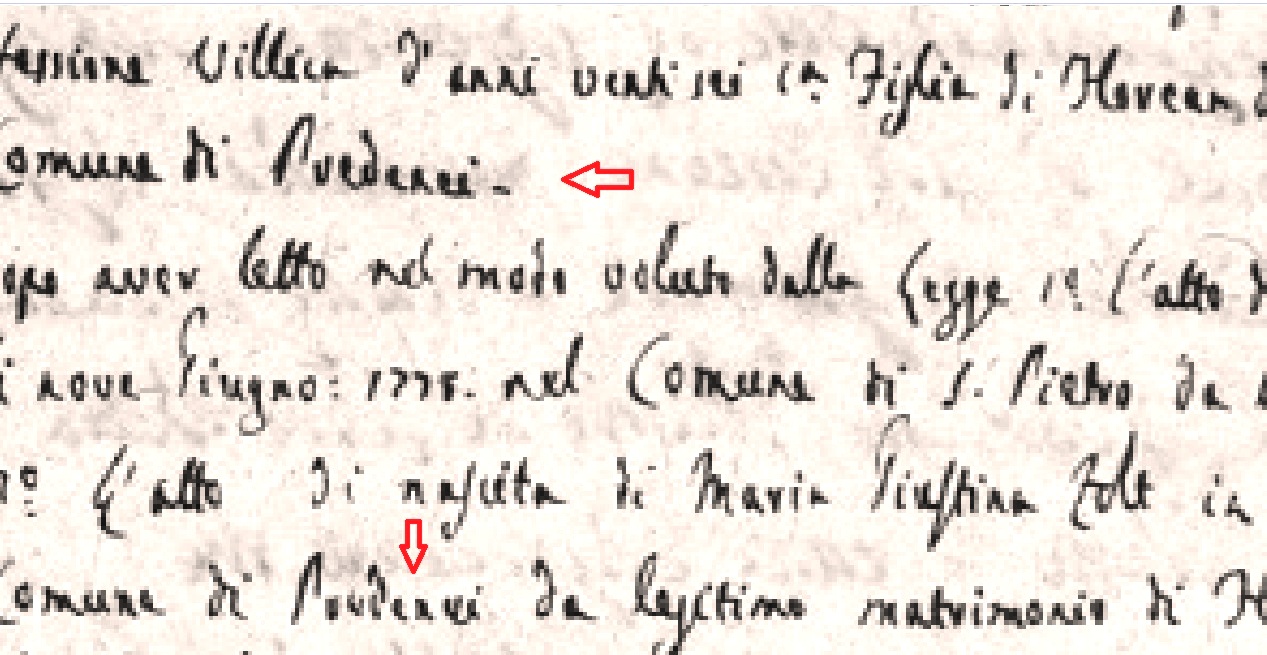 fessione Villica d'anni venti sei in Figlia di Florean
Comune di Prudenzi.
dopo aver letto nel modo voluto dalla Legge 1º. l'atto
nove Giugno: 1775. nel Comune di S. Pietro da
L'atto di nascita di Maria Giustina Zolt in
Comune di Prudenzi da legitimo matrimonio di